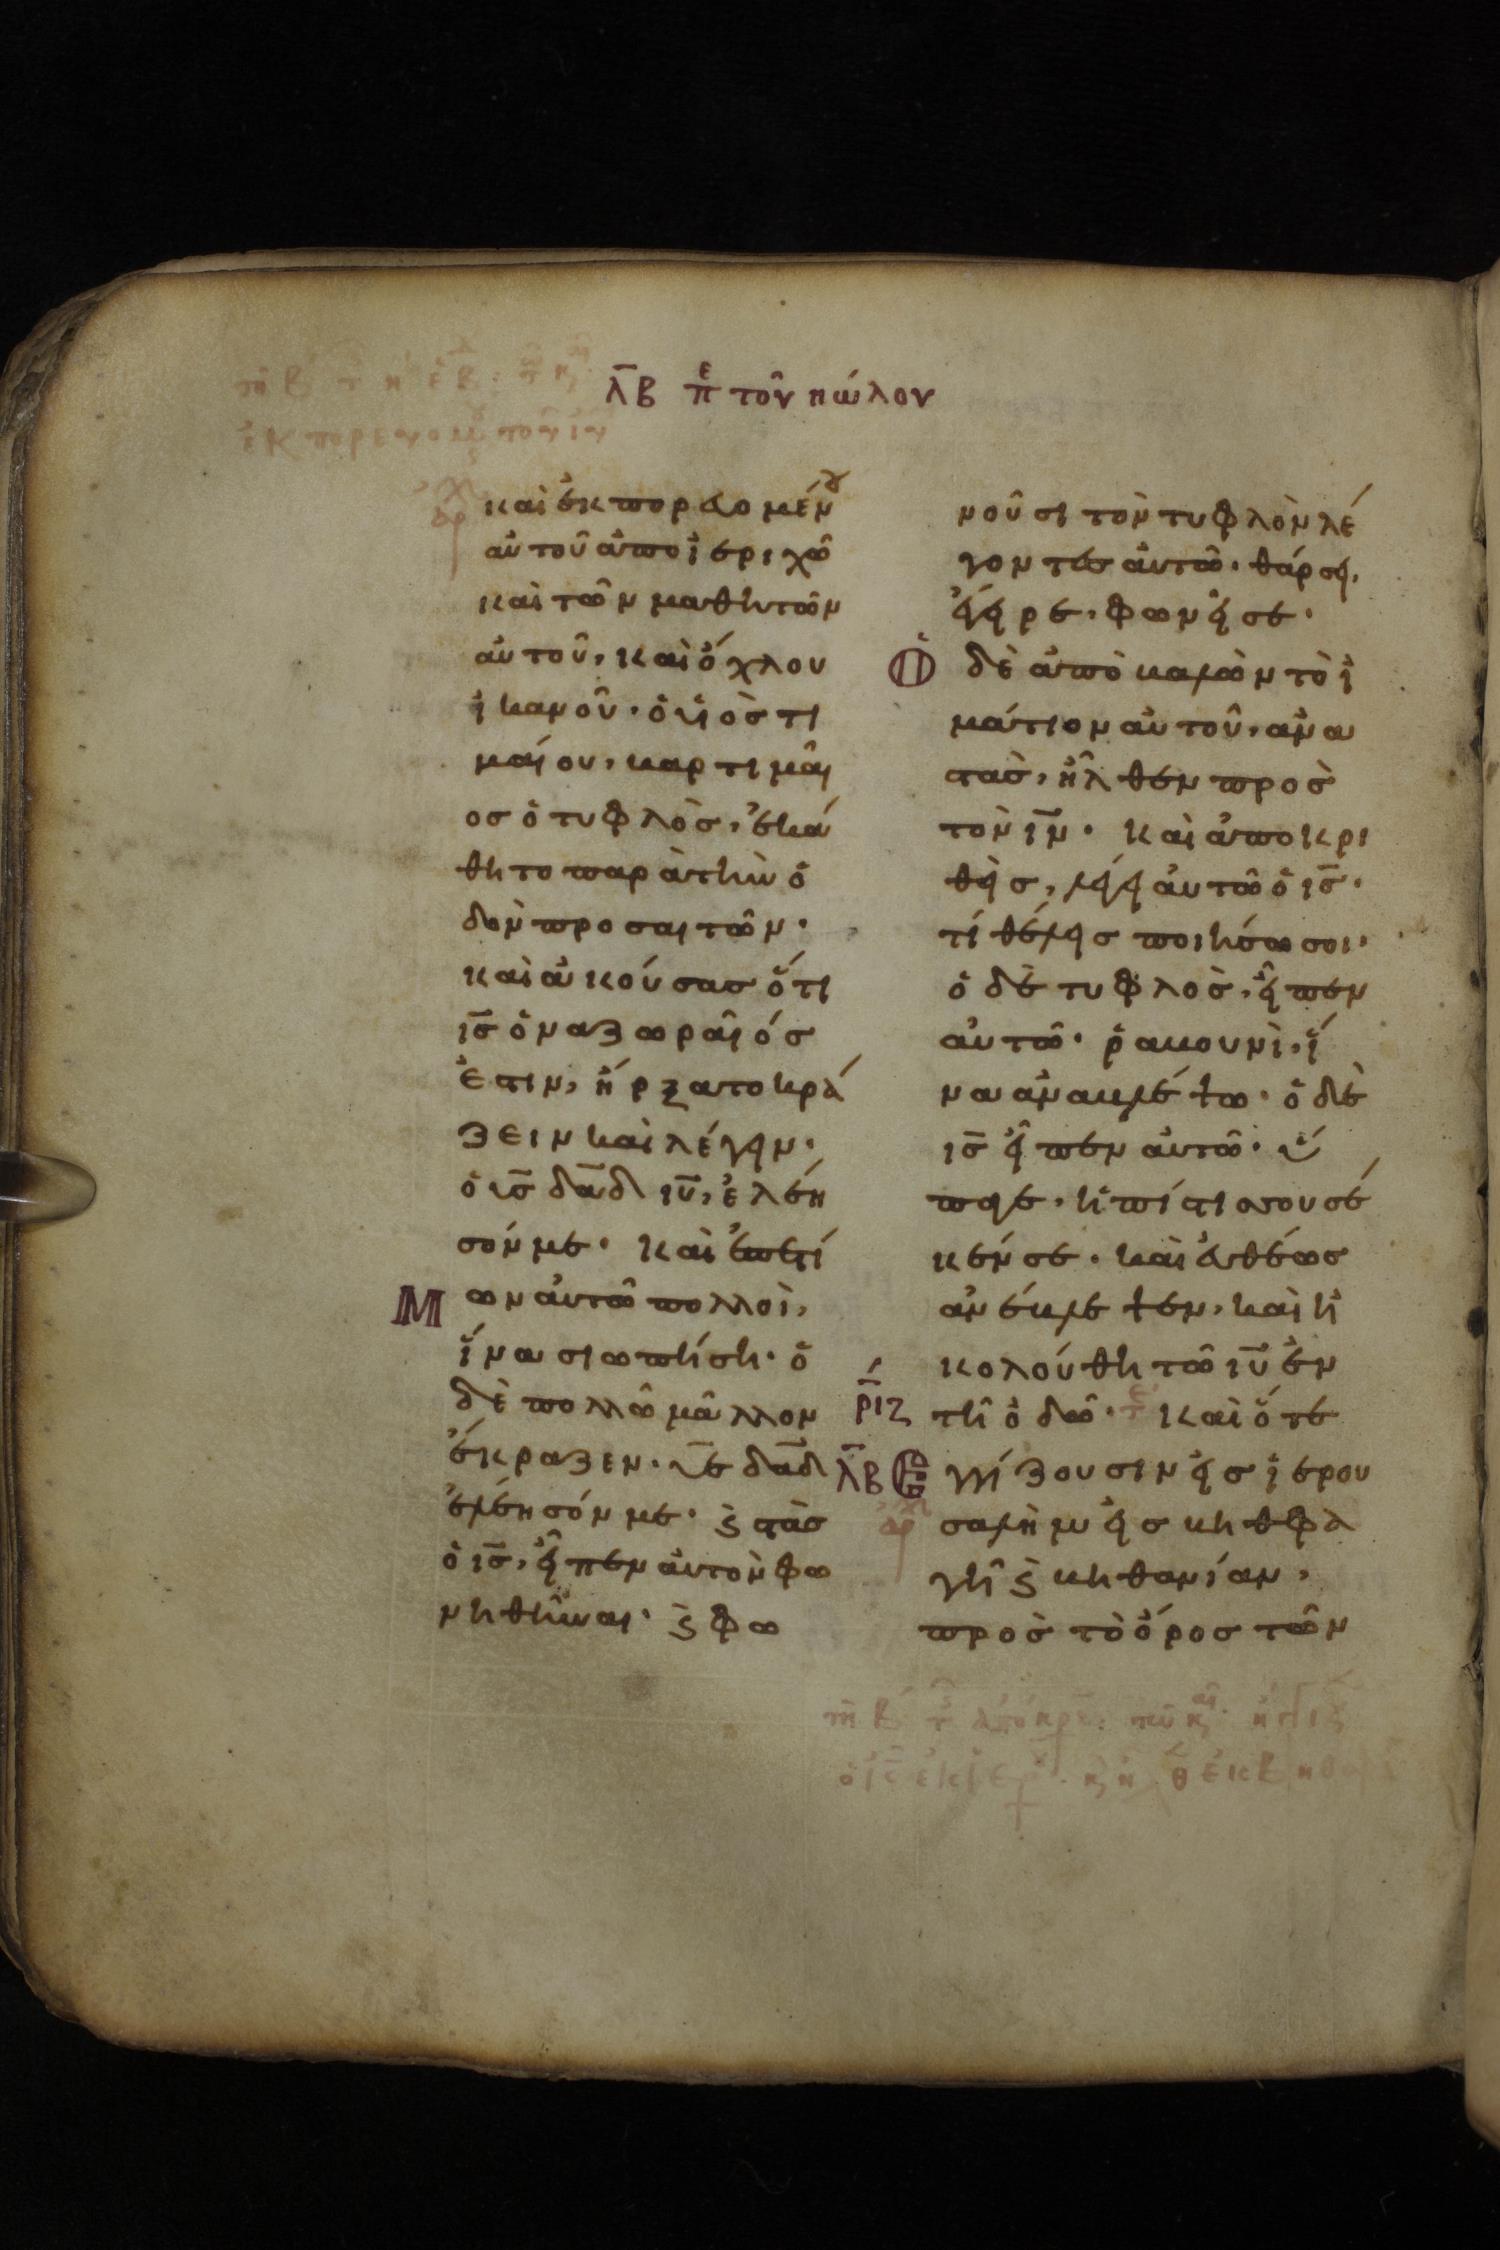 λβ πε τοῦ πώλου
ἐκπορευομου τοῦ ιυ
καὶ ἐκπορευομένου
αὐτοῦ ἀπο ἱεριχῶ
καὶ τῶν μαθητῶν
αὐτοῦ, καὶ ὄχλου
ἱκανοῦ· ὁ υἱὸσ τι
μαίου, βαρτιμαῖ
οσ ὁ τυφλὸσ, ἐκά
θητο παρὰ τὴν ὁ
δὸν προσαιτῶν·
καὶ ἀκούσασ ὅτι
ισ ὁ ναζωραῖόσ
ἐστιν, ἤρξατο κρά
ζειν καὶ λέγειν·
ὁ υσ δαδ ιυ, ἐλέη
σόν με· καὶ ἐπετί
μων αὐτῶ πολλοὶ,
ἵνα σιωπήση· ὁ
δὲ πολλῶ μᾶλλον
ἔκραζεν· υε δαδ
ἐλέησόν με· ϗ στὰσ
ὁ ισ, εἶπεν αὐτὸν φω
νηθῆναι· ϗ φω
νοῦσι τὸν τυφλὸν λέ
γοντεσ αὐτῶ· θάρσει,
ἔγειρε, φωνεῖ σε·
Ὁ δὲ ἀποβαλὼν τὸ ἱ
μάτιον αὐτοῦ, ἀνα
στὰσ, ἦλθεν πρὸσ
τὸν ιν· καὶ ἀποκρι
θεὶσ, λέγει αὐτῶ ὁ ισ·
τί θέλεισ ποιήσω σοι·
ὁ δὲ τυφλὸσ, εἶπεν
αὐτῶ· ῥαβουνὶ, ἵ
να ἀναβλέψω· ὁ δὲ
ισ εἶπεν αὐτῶ· ὕ
παγε, ἡ πίστισ σου σέ
σωκέν σε· καὶ εὐθέωσ
ἀνέβλεψεν, καὶ ἠ
κολούθη τῶ ιυ ἐν
ριζ τῆ ὁδῶ· καὶ ὅτε
λβ ἐγγίζουσιν εἰσ ἱερου
σαλὴμ εἰσ βηθφα
γῆ ϗ βηθανίαν,
πρὸσ τὸ ὄροσ τῶν